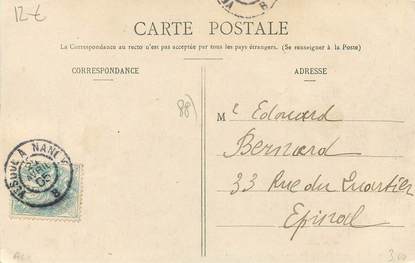 12 €
CARTE POSTALE
La Correspondance au recto n'est pas acceptée par tous les pays étrangers. (Se renseigner à la Poste)
CORRESPONDANCE
ADRESSE
88)
M r Edouard
Bernard
33 Rue du Quartier
Epinal
VESOUL A NANCY
05
B